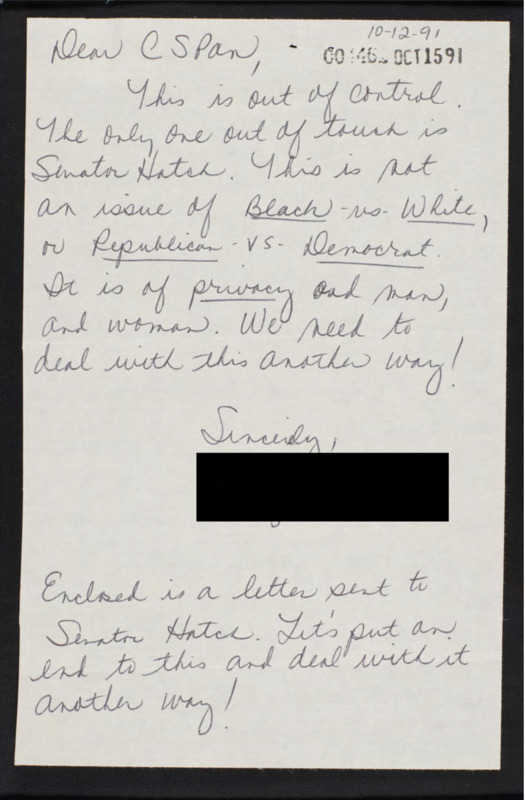 10-12-91
Dear C SPan,
OCT 15 91
This is out of control.
The only one out of touch is
Senator Hatch. This is not
an issue of Black -vs- White,
or Republican -vs- Democrat.
It is of privacy and man,
and woman. We need to
deal with this another way!
Sincerely,
Enclosed is a letter sent to
Senator Hatch. Let's put an
end to this and deal with it
another way!